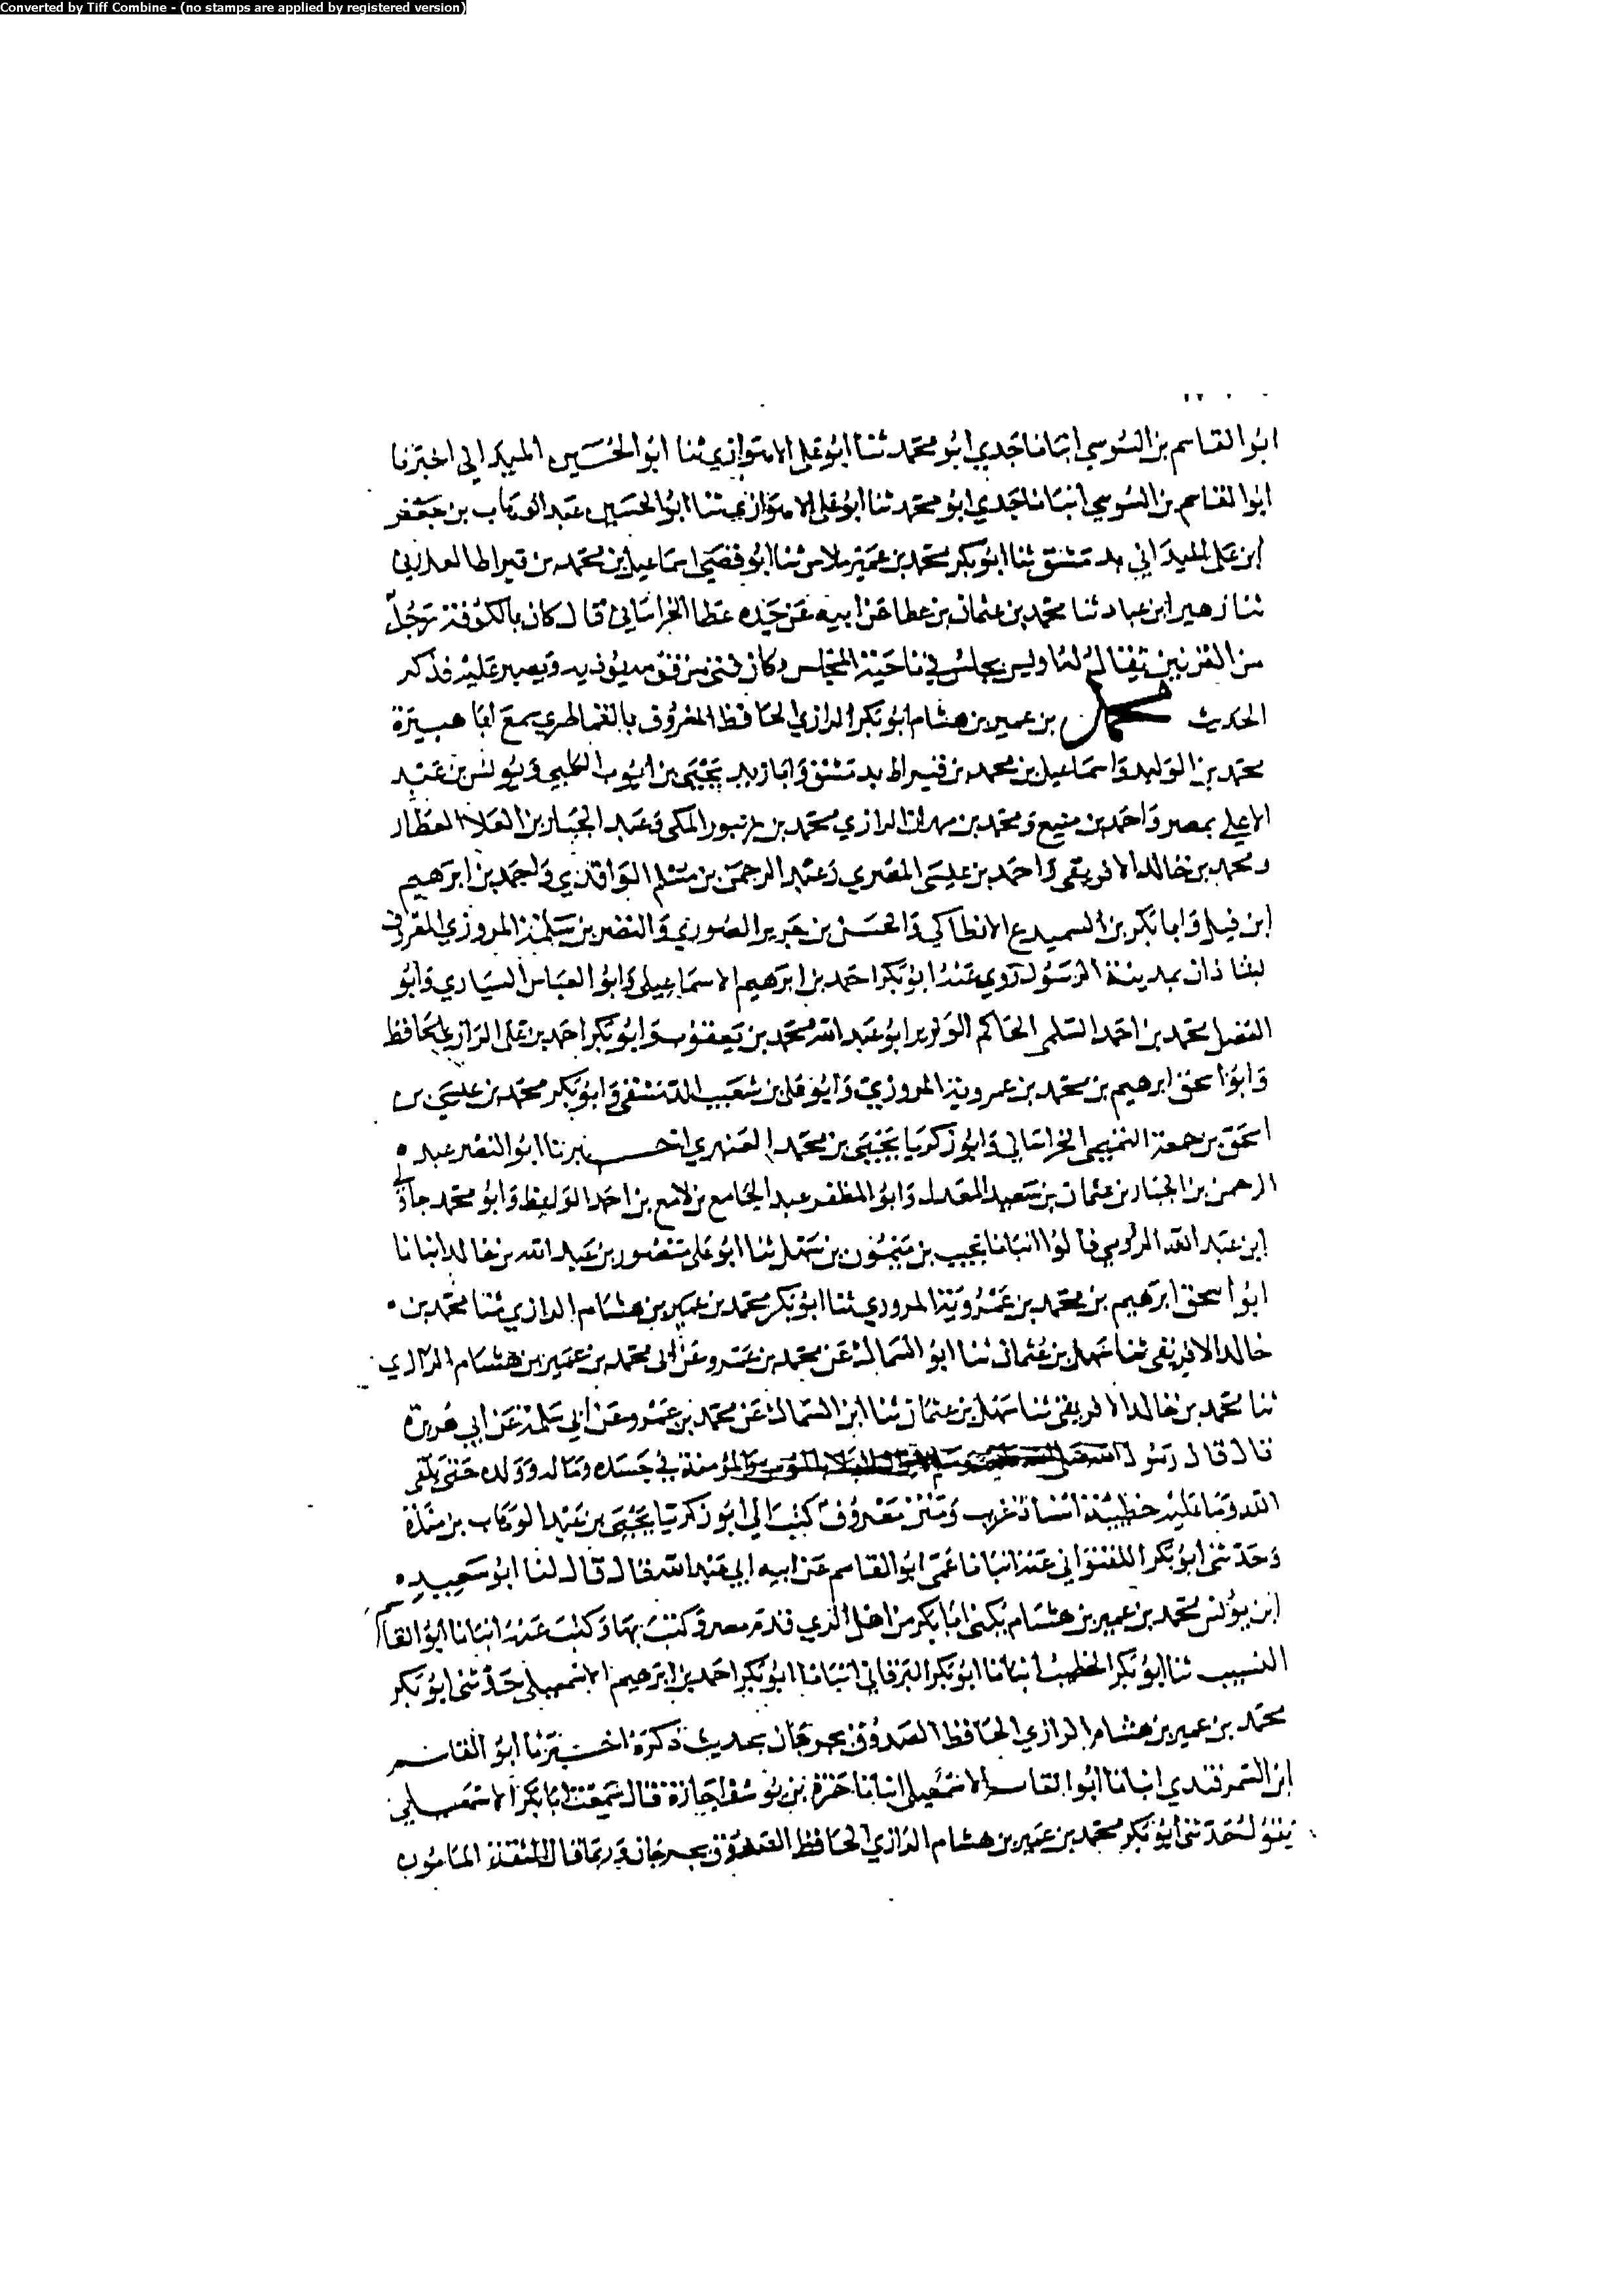 Converted by Tiff Combine - (no stamps are applied by registered version)
ابو القاسم بن السوسي انبانا جدي ابو محمد ثنا ابو على الاهوازي ثنا ابو الحسين الميدانى اخبرنا
ابو القاسم بن السوسي انبانا جدي ابو محمد ثنا ابو على الاهوازي ثنا ابو الحسين عبد الوهاب بن جعفر
ابن على الميداني بدمشق ثنا ابو بكر محمد بن عمير ثنا ابو قصي اسماعيل بن محمد بن قيراط العذري
ثنا زهير ابن عباد ثنا محمد بن عثمان بن عطا عن ابيه عن جده عطا الخراساني قال كان بالكوفة رجل
من القرنيين يقال له اويس يجلس في ناحية المجلس وكان فتى من يوذيه ويصبر عليه فذكر
الحديث محمد بن عمير بن هشام ابو بكر الرازي الحافظ المعروف بالقماطري سمع ابا هبيرة
محمد بن الوليد واسماعيل بن محمد بن قيراط بدمشق وابا زيد يحيى بن ايوب ويونس بن عبد
الاعلى بمصر واحمد بن منيع ومحمد بن مهران الرازي محمد بن زنبور المكى وعبد الجبار بن العلا العطار
ومحمد بن خالد الافريقى واحمد بن عيسى المصري وعبد الرحمن بن مسلم الواقدي واحمد بن ابرهيم
ابن فيل وابا بكر بن السميدع الانطاكي والحسن بن جرير الصوري والنضر بن سلمة المروزي المعروف
بشاذان بمدينة الرسول روي عنه ابو بكر احمد بن ابرهيم الاسماعيلى وابو العباس السياري وابو
الفضل محمد بن احمد السلمى الحاكم الوزير ابو عبد الله محمد بن يعقوب وابو بكر احمد بن على الرازي الحافظ
وابو اسحق ابرهيم بن محمد بن عمروية المروزي وابو على بن شعيب الدمشقى وابو بكر محمد بن عيسى بن
اسحق بن جمعة التميمى الخراساني وابو زكريا يحيى بن محمد العنبري اخبرنا ابو النضر عبد
الرحمن بن الجبار بن عثمان بن سعيد المعدل وابو المظفر عبد الجامع بن لامع بن احمد وابو محمد
ابن عبد الله قالوا انبانا نجيب بن ميمون بن سهل ثنا ابو على منصور بن عبد الله بن خالد انبانا
ابو اسحق ابرهيم بن محمد بن عمروية المروزي ثنا ابو بكر محمد بن عمير بن هشام الرازي ثنا محمد بن
خالد الافريقى ثنا سهل بن عثمان ثنا ابو السماك عن محمد بن عمرو عن ابى محمد بن عمير بن هشام الرازي
ثنا محمد بن خالد الافريقى ثنا سهل بن عثمان ثنا ابن السماك عن محمد بن عمرو عن ابي سلمة عن ابي هريرة
قال قال رسول الله صلى الله عليه وسلم لا يزال البلا بالمؤمن والمؤمنة في جسده وماله وولده حتى يلقى
الله وما عليه خطيئة اسناد غريب ومتن معروف كتب الي ابو زكريا يحيى بن عبد الوهاب بن منده
وحدثنى ابو بكر اللفتواني عنه انبانا عمى ابو القاسم عن ابيه ابي عبد الله قال قال لنا ابو سعيد
ابن يونس محمد بن عمير بن هشام يكنى ابا بكر من اهل الري قدم مصر وكتب بها وكتب عنه انبانا ابو القاسم
النسيب ثنا ابو بكر الخطيب انبانا ابو بكر البرقاني انبانا ابو بكر احمد بن ابرهيم الاسمعيلى حدثنى ابو بكر
محمد بن عمير بن هشام الرازي الحافظ الصدوق بجرجان بحديث ذكره اخبرنا ابو القاسم
ابن السمرقندي انبانا ابو القاسم الاسمعيلى انبانا حمزة بن يوسف اجازة قال سمعت ابا بكر الاسمعيلي
يقول حدثنى ابو بكر محمد بن عمير بن هشام الرازي الحافظ الصدوق بجرجان وربما قال الثقة المامون